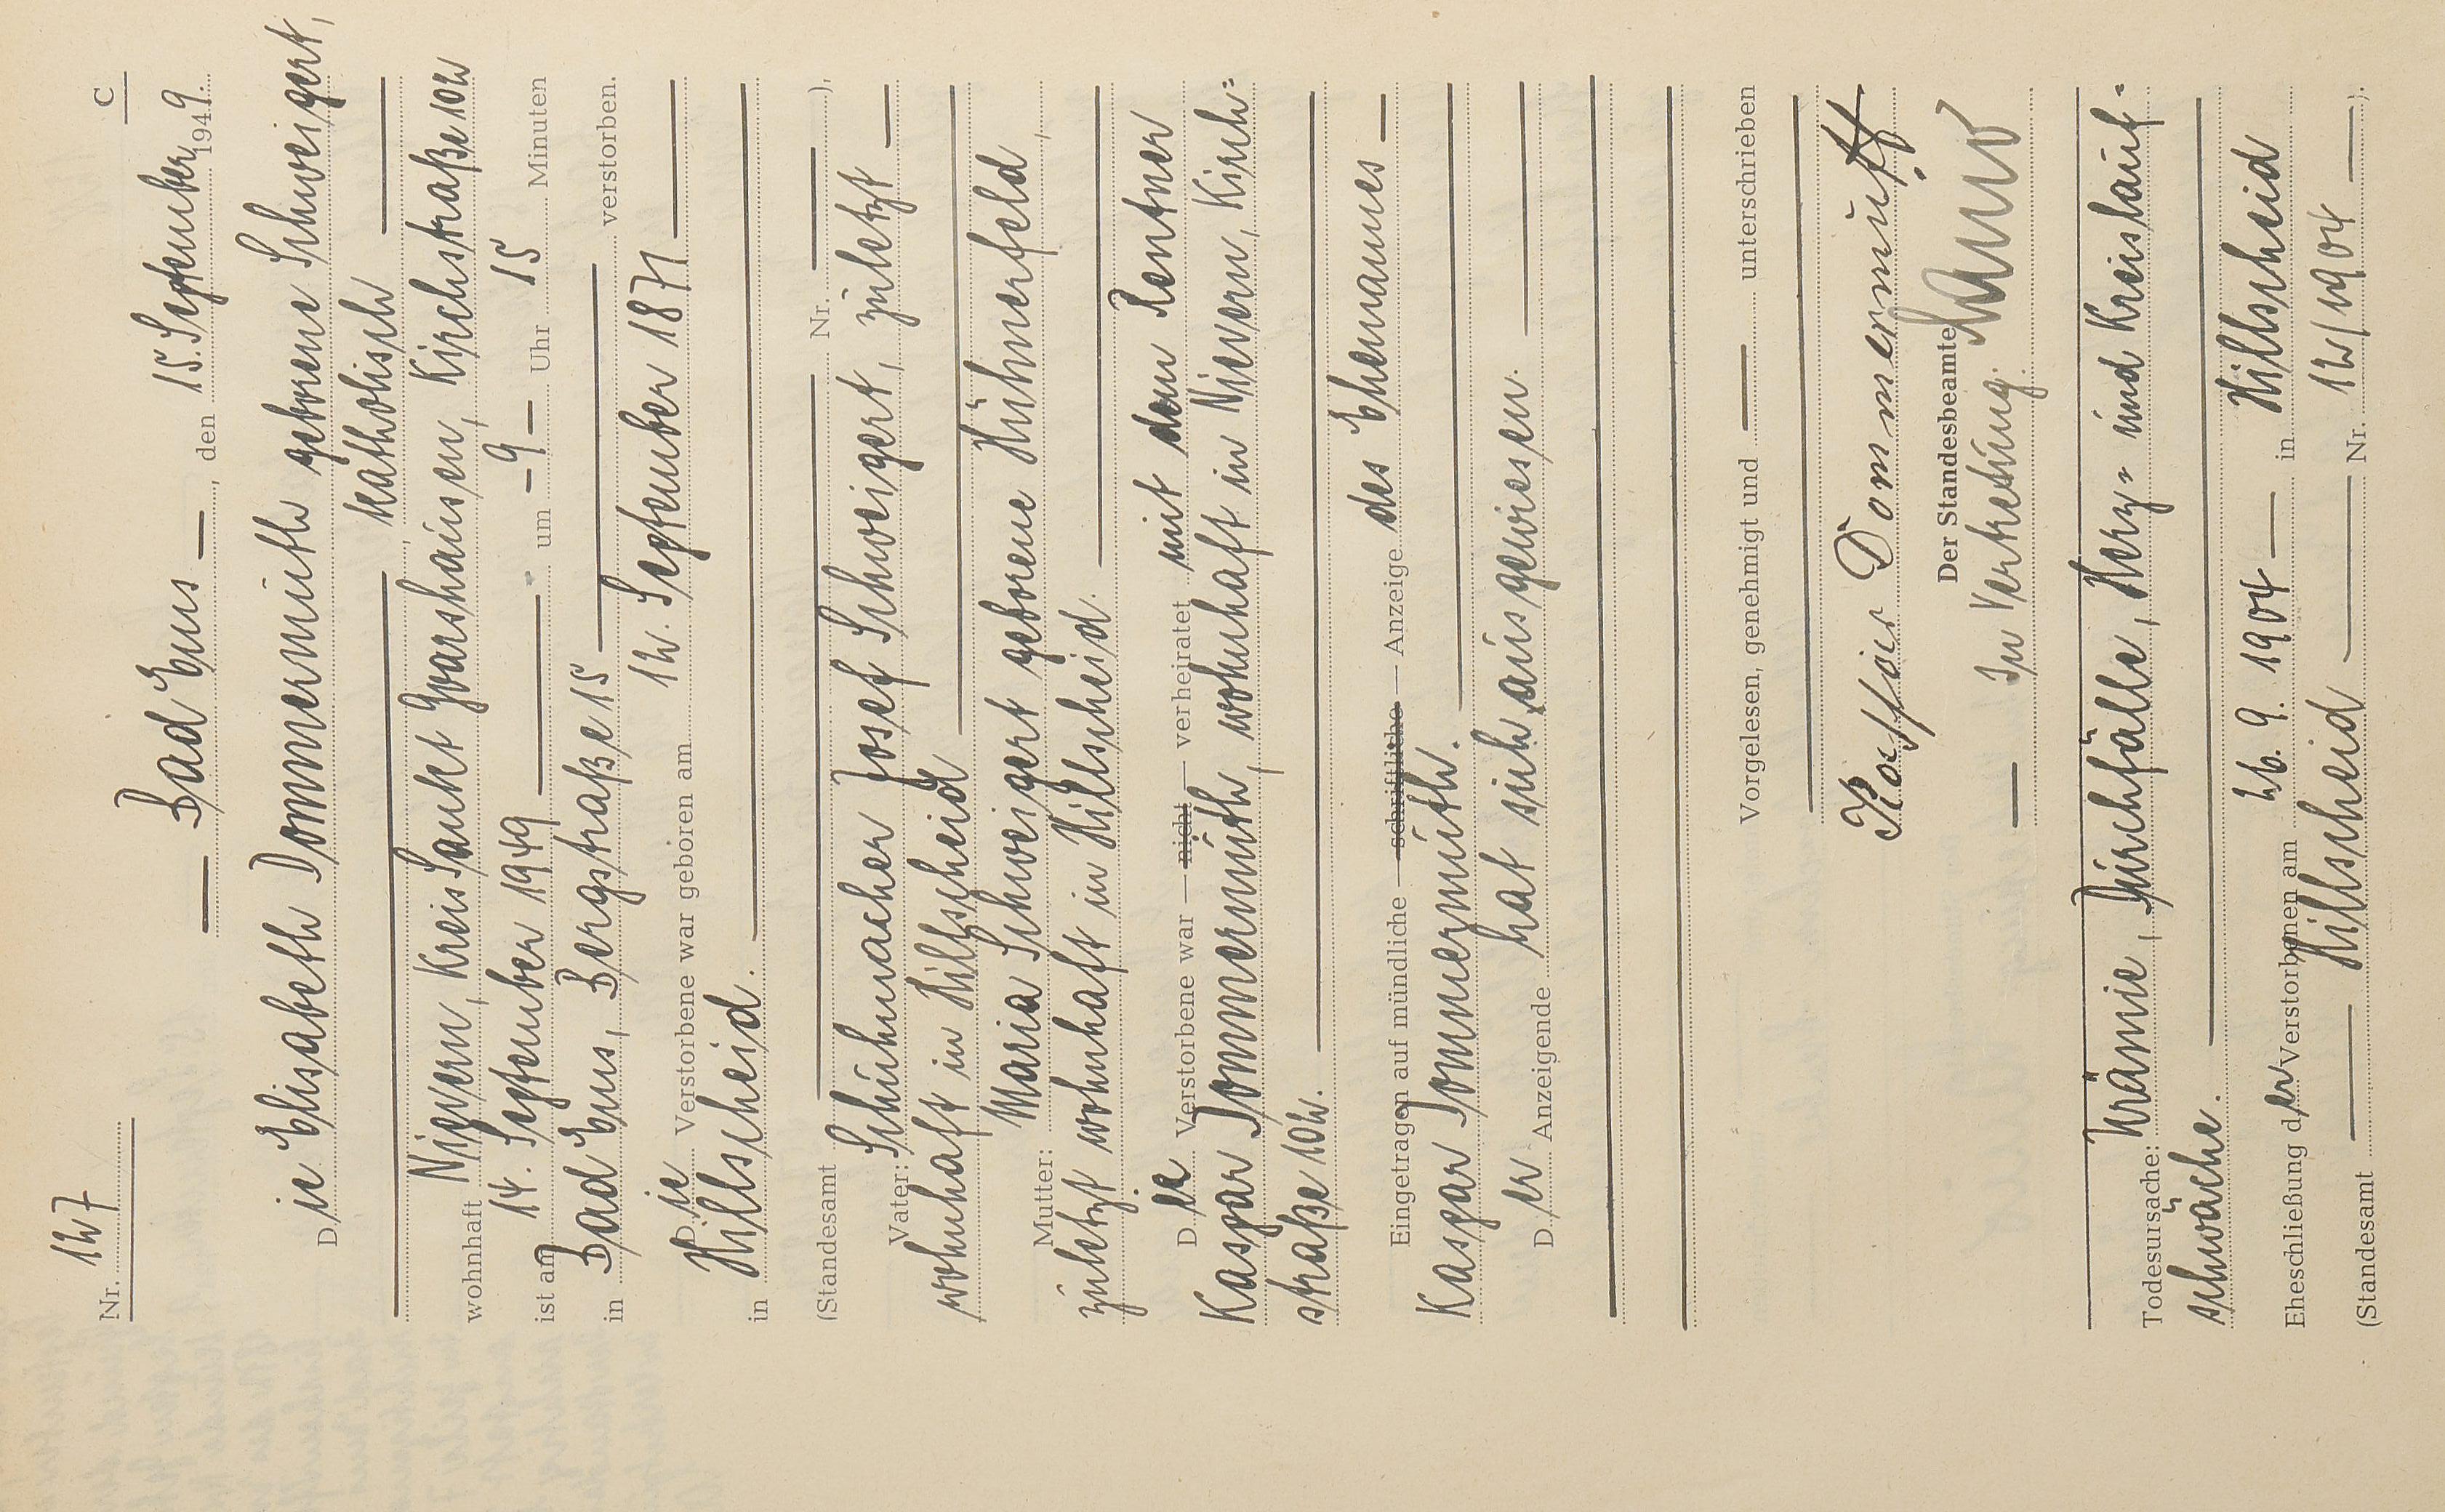 Nr. 127
C
— Bad Ems —, den 15. September 1949.
Die Elisabeth Dommermuth geborene Schweigert,
katholisch
wohnhaft Nievern, Kreis Sankt Goarshausen, Kirchstraße 102
ist am 14. September 1949 um –9– Uhr 15 Minuten
in Bad Ems, Bergstraße 15 verstorben.
Die Verstorbene war geboren am 12. September 1871
in Hillscheid.
(Standesamt Nr. ),
Vater: Schuhmacher Josef Schweigert, zuletzt
wohnhaft in Hillscheid
Mutter: Maria Schweigert geborene Hühnerfeld,
zuletzt wohnhaft in Hillscheid.
Die Verstorbene war — nicht — verheiratet mit dem Rentner
Kaspar Dommermuth, wohnhaft in Nievern, Kirch=
straße 102.
Eingetragen auf mündliche — schriftliche — Anzeige des Ehemannes —
Kaspar Dommermuth.
Der Anzeigende hat sich ausgewiesen.
Vorgelesen, genehmigt und — unterschrieben
Dommermuth
Der Standesbeamte
— In Vertretung:
Todesursache: Urämie, Durchfälle, Herz= und Kreislauf=
schwäche.
Eheschließung der Verstorbenen am 26. 9. 1904 — in Hillscheid
(Standesamt — Hillscheid — Nr. 12/1904 — ).